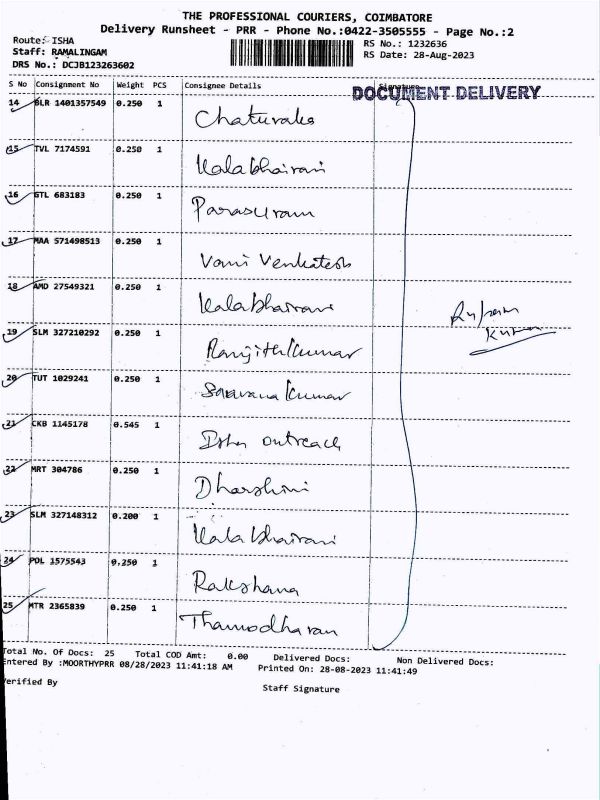 THE PROFESSIONAL COURIERS, COIMBATORE
Delivery Runsheet - PRR - Phone No.:0422-3505555 - Page No.:2
Route: ISHA
Staff: RAMALINGAM
DRS No.: DCJB123263602
RS No.: 1232636
RS Date: 28-Aug-2023
S No Consignment No Weight PCS Consignee Details Signature
DOCUMENT DELIVERY
14 BLR 1401357549 0.250 1 Chaturaks
15 TVL 7174591 0.250 1 Kalabhairavi
16 GTL 683183 0.250 1 Parasuram
17 MAA 571498513 0.250 1 Vami Venkatesh
18 AMD 27549321 0.250 1 Kalabhairavi
19 SLM 327210292 0.250 1 Ranjithkumar
20 TUT 1029241 0.250 1 Saravana kumar
21 CKB 1145178 0.545 1 Isha outreach
22 MRT 304786 0.250 1 Dharshini
23 SLM 327148312 0.200 1 Kalabhairavi
24 PDL 1575543 0.250 1 Rakshana
25 MTR 2365839 0.250 1 Thamodharan
Kumar
Total No. Of Docs: 25 Total COD Amt: 0.00 Delivered Docs: Non Delivered Docs:
Entered By :MOORTHYPRR 08/28/2023 11:41:18 AM Printed On: 28-08-2023 11:41:49
Verified By
Staff Signature